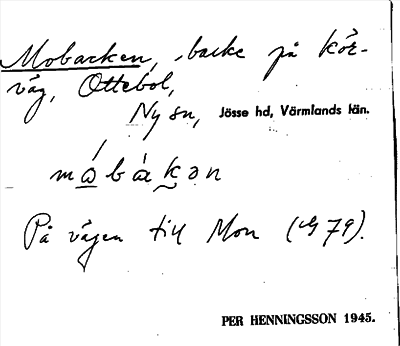 Mobacken, backe på kör-
väg, Ottebol,
Ny sn, Jösse hd, Värmlands län.
På vägen till Mon (
79).
PER HENNINGSSON 1945.